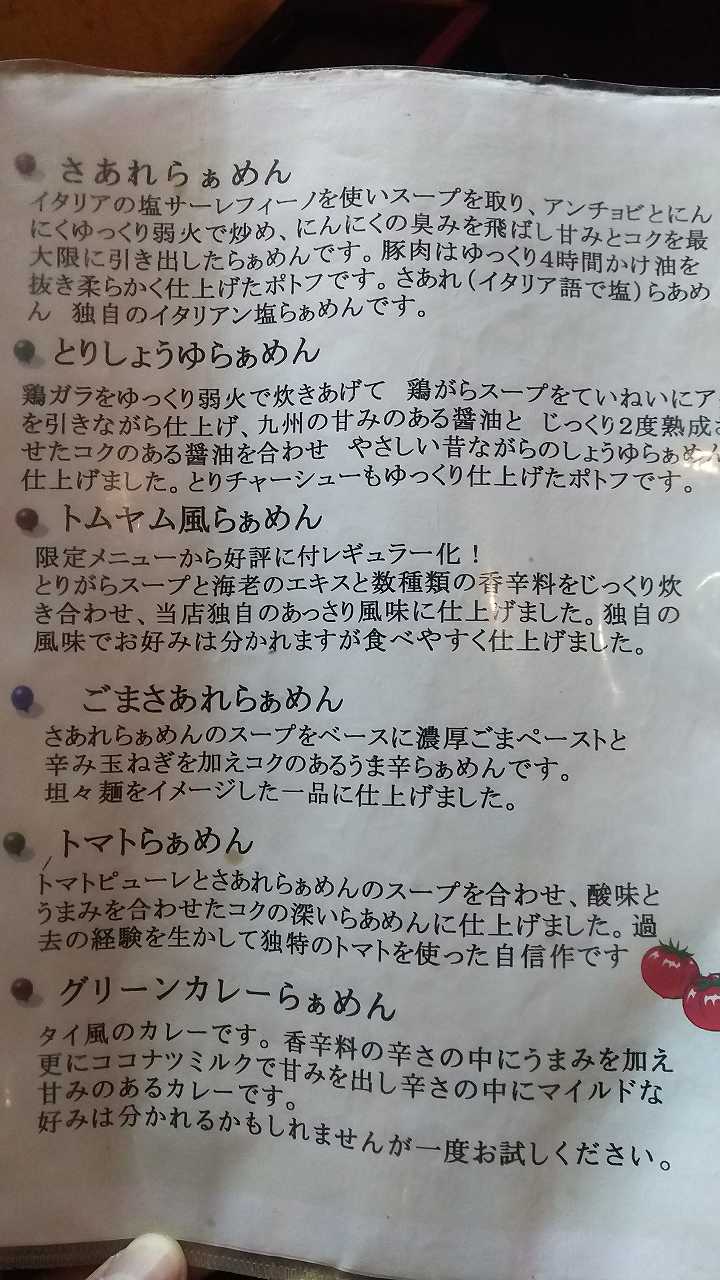 さあれらぁめん
イタリアの塩サーレフィーノを使いスープを取り、アンチョビとにん
にくゆっくり弱火で炒め、にんにくの臭みを飛ばし甘みとコクを最
大限に引き出したらぁめんです。豚肉はゆっくり4時間かけ油を
抜き柔らかく仕上げたポトフです。さあれ（イタリア語で塩）らあめ
ん 独自のイタリアン塩らぁめんです。
とりしょうゆらぁめん
鶏ガラをゆっくり弱火で炊きあげて 鶏がらスープをていねいにア
を引きながら仕上げ、九州の甘みのある醤油と じっくり2度熟成さ
せたコクのある醤油を合わせ やさしい昔ながらのしょうゆらぁめん
仕上げました。とりチャーシューもゆっくり仕上げたポトフです。
トムヤム風らぁめん
限定メニューから好評に付レギュラー化！
とりがらスープと海老のエキスと数種類の香辛料をじっくり炊
き合わせ、当店独自のあっさり風味に仕上げました。独自の
風味でお好みは分かれますが食べやすく仕上げました。
ごまさあれらぁめん
さあれらぁめんのスープをベースに濃厚ごまペーストと
辛み玉ねぎを加えコクのあるうま辛らぁめんです。
坦々麺をイメージした一品に仕上げました。
トマトらぁめん
トマトピューレとさあれらぁめんのスープを合わせ、酸味と
うまみを合わせたコクの深いらあめんに仕上げました。過
去の経験を生かして独特のトマトを使った自信作です
グリーンカレーらぁめん
タイ風のカレーです。香辛料の辛さの中にうまみを加え
更にココナツミルクで甘みを出し辛さの中にマイルドな
甘みのあるカレーです。
好みは分かれるかもしれませんが一度お試しください。